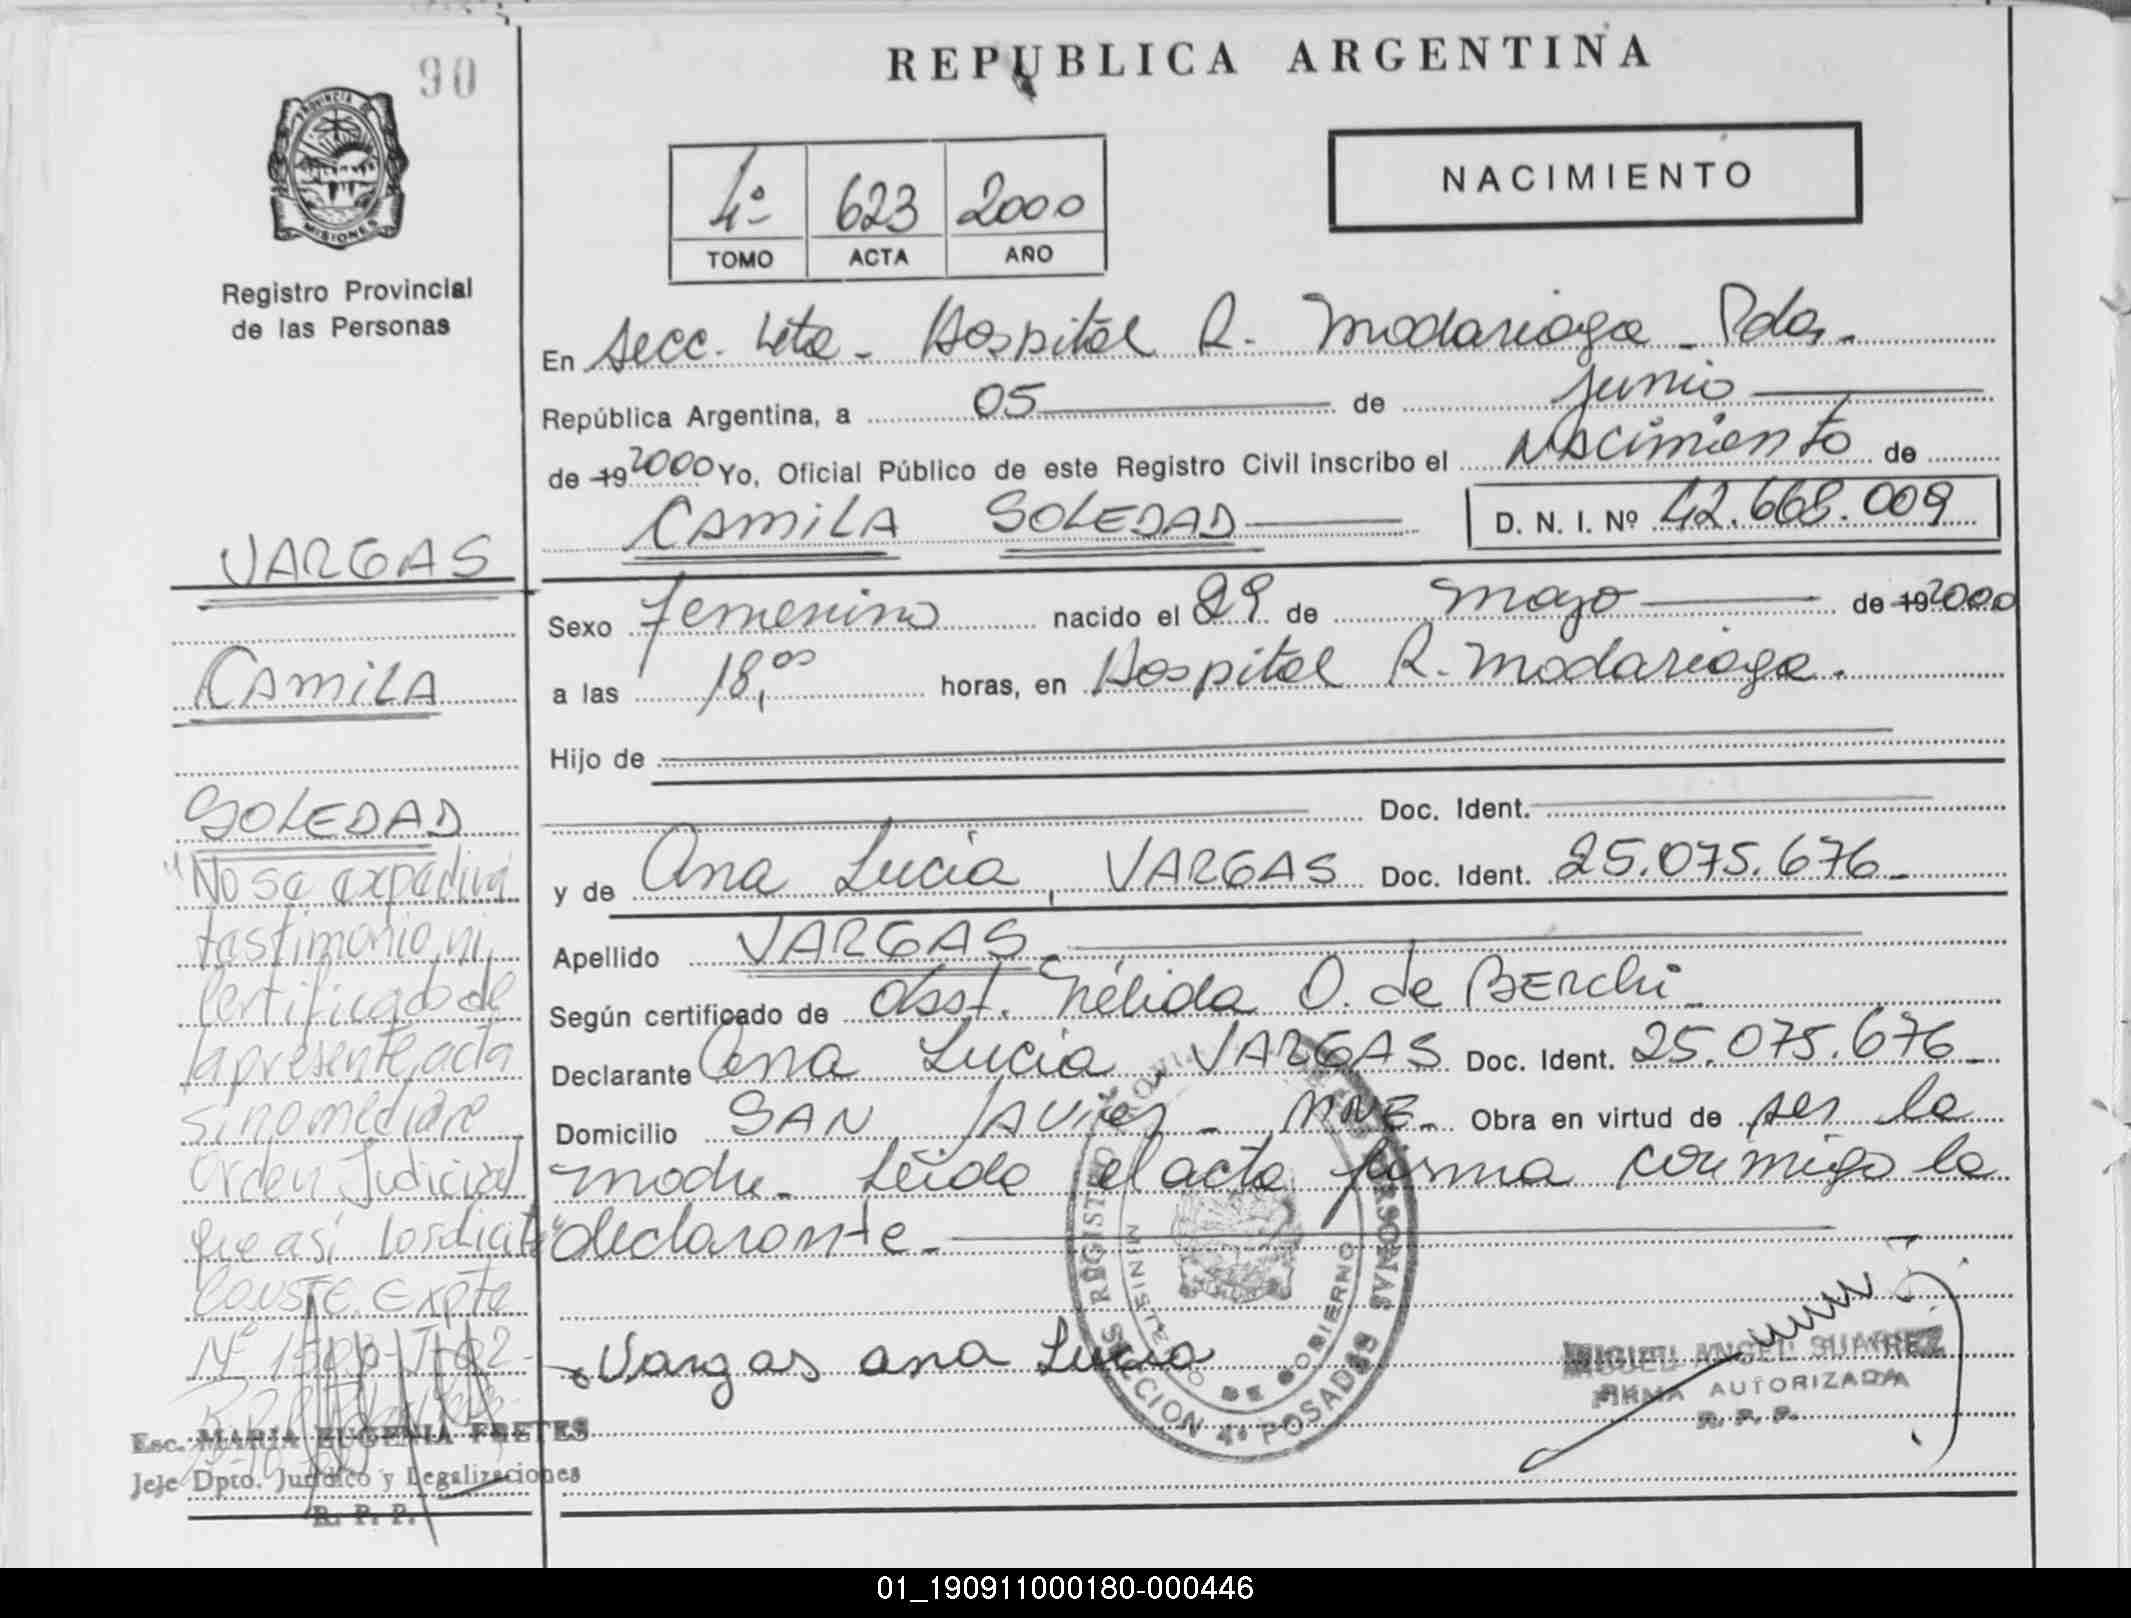 90
REPUBLICA ARGENTINA
PROVINCIA DE
MISIONES
Registro Provincial
de las Personas
NACIMIENTO
4º 623 2000
TOMO ACTA AÑO
En Secc. 4ta - Hospital R. Madariaga - Pdas.-
República Argentina, a 05 de junio
de 19 2000 Yo, Oficial Público de este Registro Civil inscribo el Nacimiento de
CAMILA SOLEDAD D. N. I. Nº 42.668.009
Sexo femenino nacido el 29 de mayo de 19 2000
a las 18,00 horas, en Hospital R. Madariaga.
Hijo de
Doc. Ident.
y de Ana Lucia, VARGAS Doc. Ident. 25.075.676-
Apellido VARGAS
Según certificado de Obst. Nélida O. de BERchi-
Declarante Ana Lucia VARGAS Doc. Ident. 25.075.676-
Domicilio SAN JAVier - MNE- Obra en virtud de ser la
madre- Leida el acta firma conmigo la
declarante-
Vargas ana Lucia
REGISTRO PROVINCIAL DE LAS PERSONAS
MINISTERIO DE GOBIERNO
SECCION 4ª POSADAS
MIGUEL ANGEL SUAREZ
FIRMA AUTORIZADA
R. P. P.
VARGAS
CAMILA
SOLEDAD
"No se expedira
testimonio ni
certificado de
la presente acta
si no mediare
Orden Judicial
que así los dicte"
Conste. Expte
Nº
Esc. MARIA EUGENIA FRETES
Jefe Dpto. Jurídico y Legalizaciones
R. P. P.
01_190911000180-000446